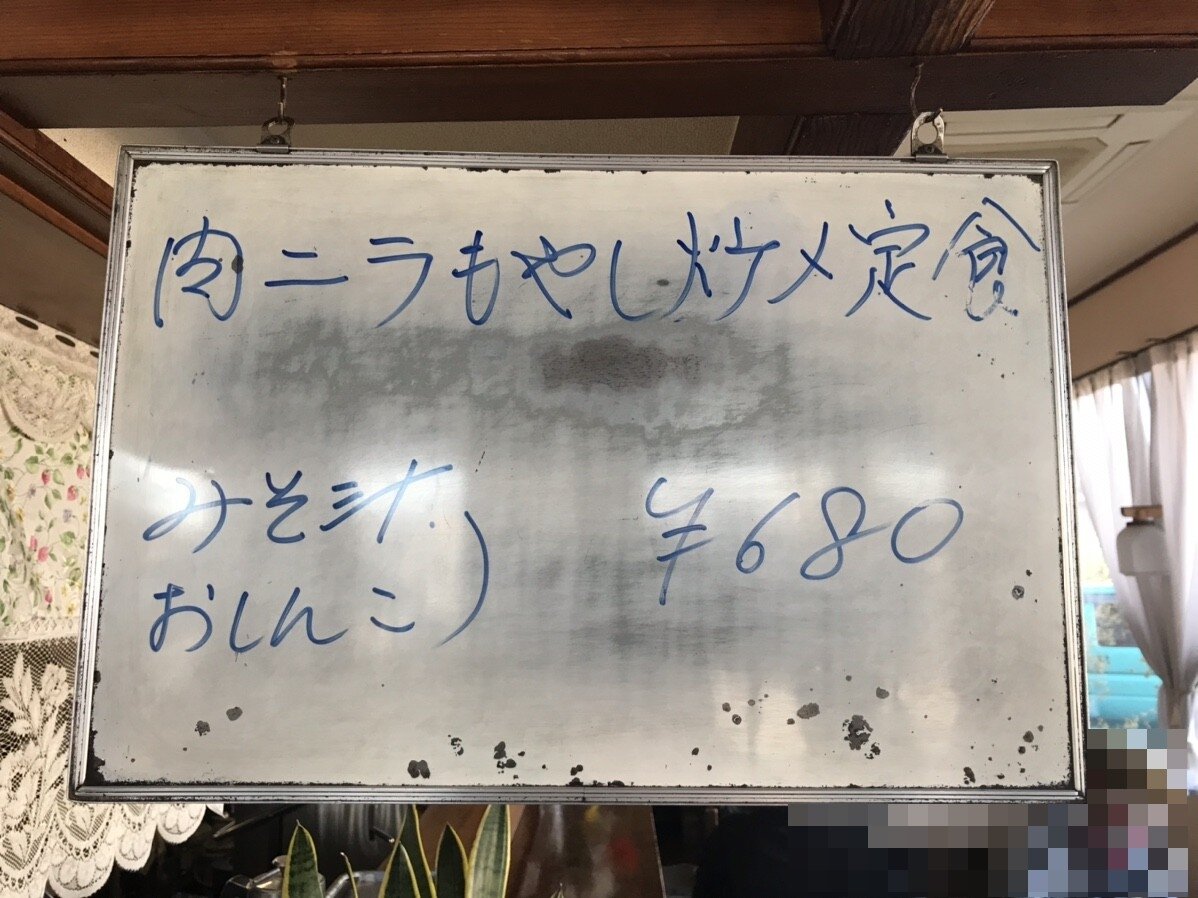 肉ニラもやし炒メ定食
みそ汁
おしんこ)
¥680